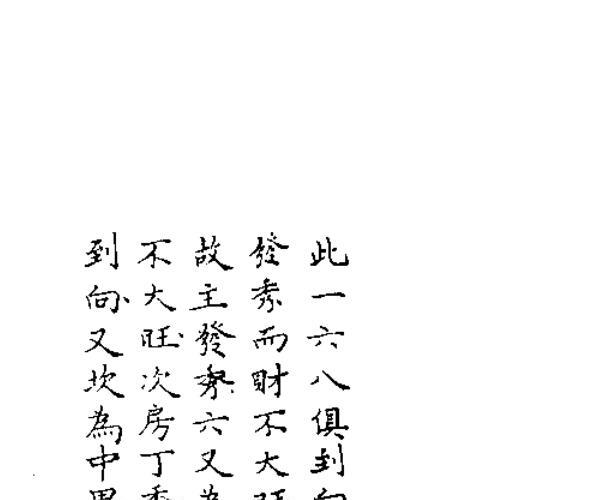 此一六八俱到向
發秀而財不大旺
故主發秀六又為
不大旺次房丁秀
到向又坎為中男